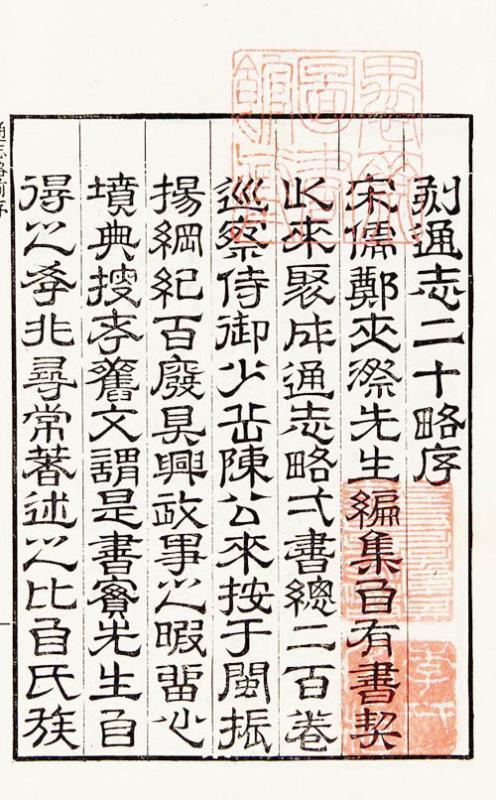 刻通志二十略序
宋儒鄭夾漈先生編集自有書契
以來聚成通志略一書總二百卷
巡察侍御少岳陳公來按于閩振
揚綱紀百廢具興政事之暇留心
墳典搜奇舊文謂是書實先生自
得之學非尋常著述之比自氏族